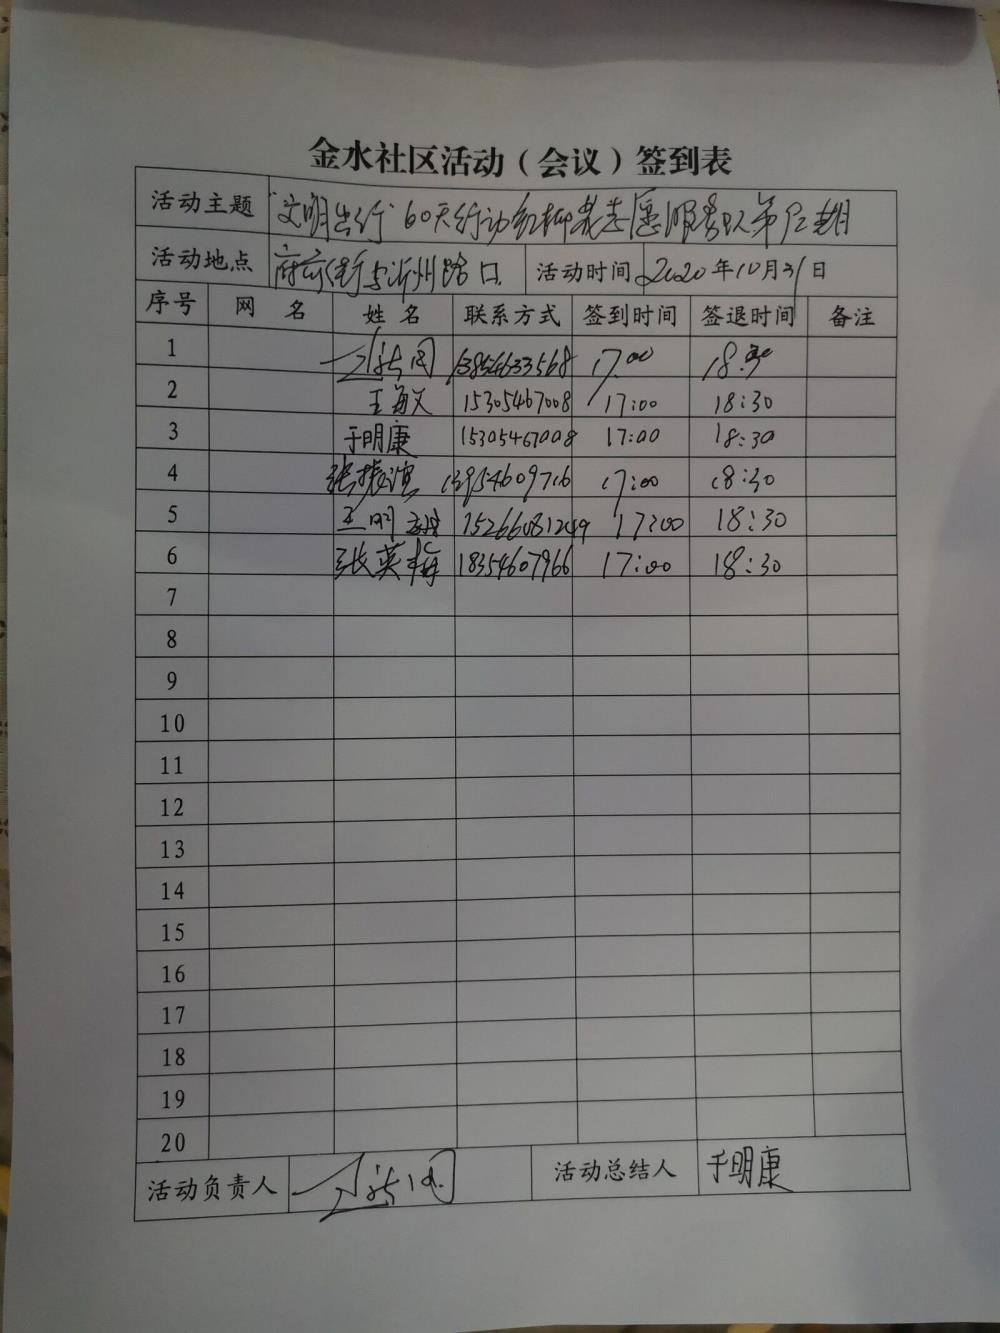 金水社区活动（会议）签到表
活动主题 "文明出行"60天行动红柳志愿服务队第 期
活动地点 府前街与沂州路口 活动时间 2020年10月31日
序号 网 名 姓 名 联系方式 签到时间 签退时间 备注
1 13854633568 17:00 18:30
2 王海义 15305467008 17:00 18:30
3 于明康 15305467008 17:00 18:30
4 张振 13954609716 17:00 18:30
5 王明 15266081249 17:00 18:30
6 张英梅 18354607966 17:00 18:30
7
8
9
10
11
12
13
14
15
16
17
18
19
20
活动负责人 活动总结人 于明康